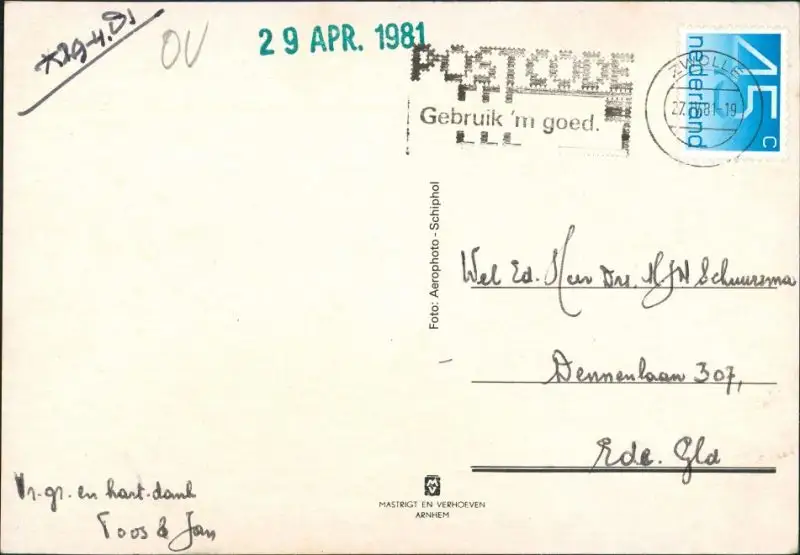 29 APR. 1981
OV
POSTCODE
Gebruik 'm goed.
ZWOLLE
27.IV.81-19
45 c
nederland
Foto: Aerophoto - Schiphol
Wel Ed. Heer Drs. HJN Schuursma
Dennenlaan 307,
Ede. Gld
Vr. gr. en hart. dank
Toos & Jan
MV
MASTRIGT EN VERHOEVEN
ARNHEM